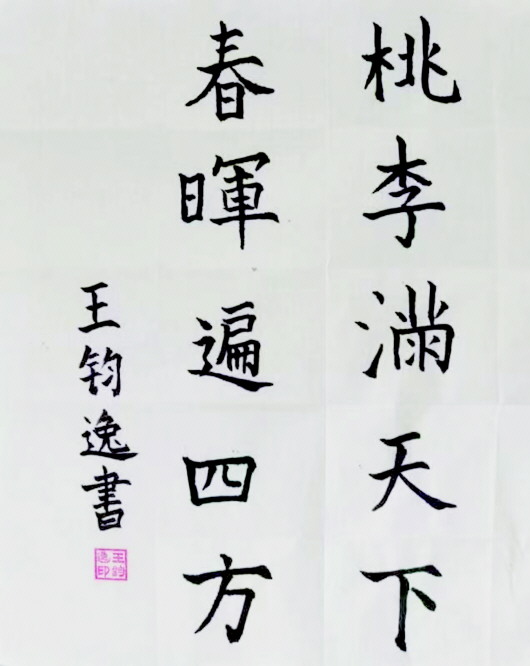 桃李満天下
春暉遍四方
王钧逸書
王钧逸印